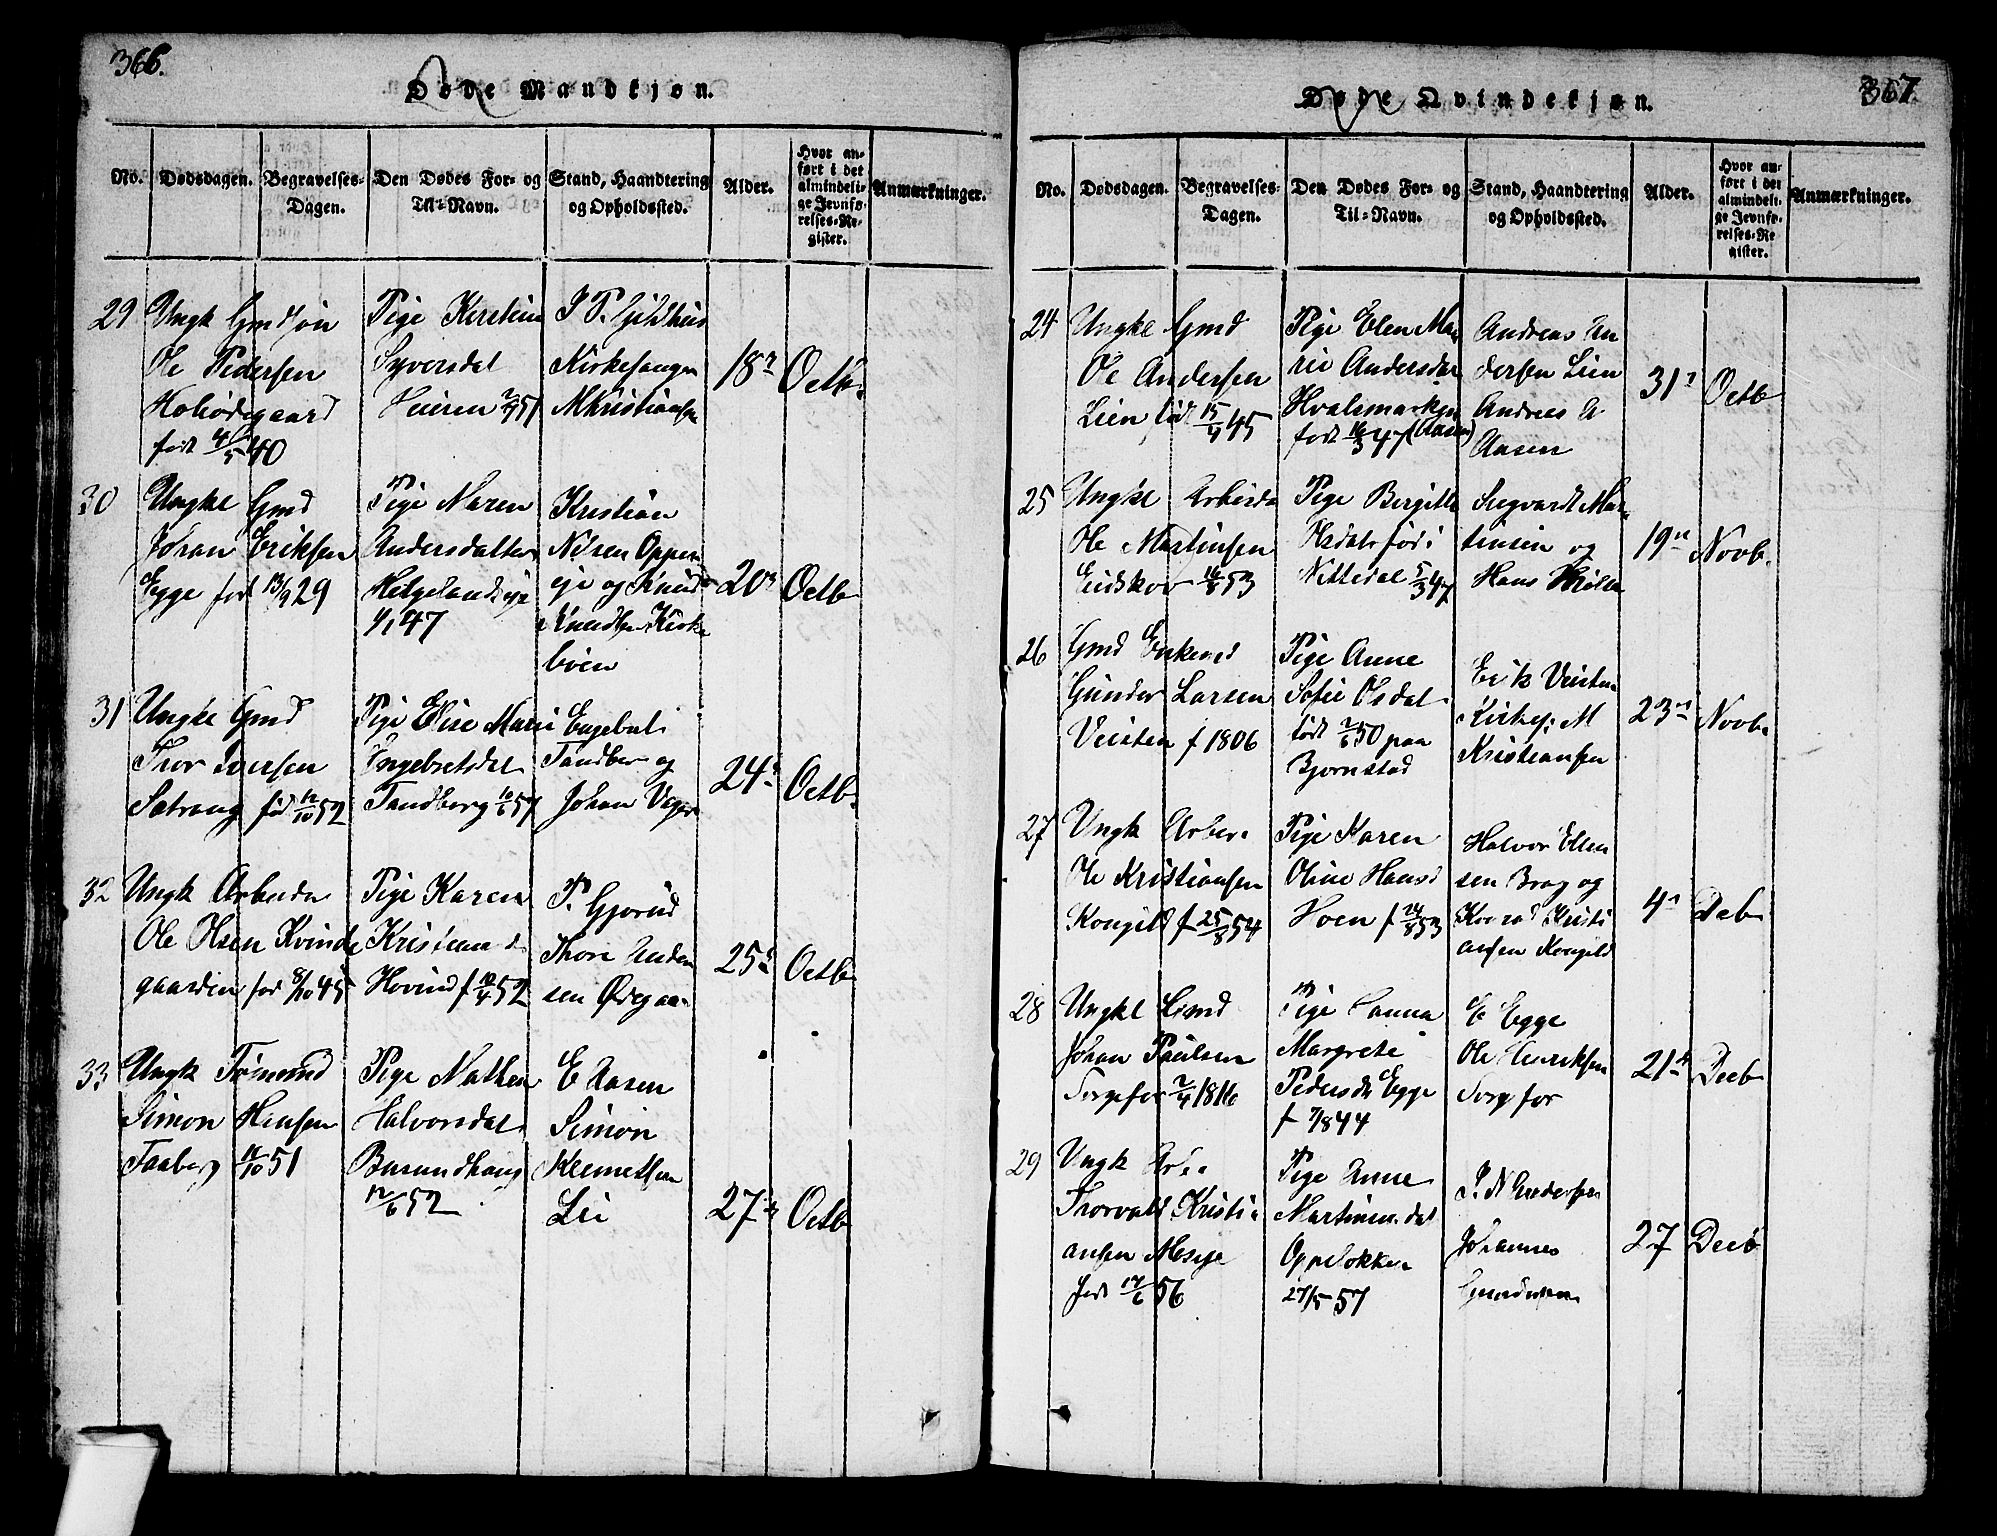 366.
Døde Mandkjøn.
No.
Dødsdagen.
Begravelses-
Dagen.
Den Dødes For- og
Til-Navn.
Stand, Haandtering
og Opholdssted.
Alder.
Hvor an-
ført i det
almindeli-
ge Jevnfø-
relses-Re-
gister.
Anmærkninger.
29
Ungk Gmdsøn
Ole Pedersen
født 4/5 40
Pige Kirstine
Syversdat
Kirkesanger
M Kristiansen
18
Octb.
30
Ungke Gmd
Johan Eriksen
Egge født 13/9 29
Pige Maren
Andersdatter
Helgelandseje
1/1 47
Kristian
Nilsen Oppen
eje og Knud
Knudsen Kirke
bøen
20
Octb
31
Ungke Gmd
Thor Iversen
Satrang fød 12/10 52
Pige Elise Marie
Engebretsdat
Tandberg 10/6 57
Engebret
Tandber og
Johan
24
Octb.
32
Ungk Arbeider
Ole Olsen Kvinde
gaarden fød 8/10 45
Pige Karen
Kristians d
Hovind f 10/4 52
P. Gjørud
Thore Anden
sen Ødegaa
25
Octb
33
Ungk Tømmd
Simon Hansen
Faaberg 12/10 51
Pige Mathea
Halvorsdat
Busundhaug
12/6 52
E Aasen
Simon
Klemetsen
Lie
27
Octb
367.
Døde Qvindekjøn.
No.
Dødsdagen.
Begravelses-
Dagen.
Den Dødes For- og
Til-Navn.
Stand, Haandtering
og Opholdssted.
Alder.
Hvor an-
ført i det
almindeli-
ge Jevnfø-
relses-Re-
gister.
Anmærkninger.
24
Ungke Gmd
Ole Andersen
Lien født 15/4 45
Pige Elen Ma-
rie Andersdat
Hvalsmarken
født 16/3 47 (Aasen)
Andreas An
dersen Lien
Andreas A
Aasen
31
Octb
25
Ungke Arbeider
Ole Martinsen
Eidskov 16/8 53
Pige Bergitte
Olsdat fød i
Nittedal 5/3 47
Segvardt Mar-
tinsen og
Hans
19
Novb.
26
Gmd Enkemd
Gunder Larsen
Veisten f 1806
Pige Anne
Sofie Olsdat
født 2/6 50 paa
Bjørnstad
Erik Veisten
Kirkes. M
Kristiansen
23
Novb.
27
Ungk Arber.
Ole Kristiansen
Kongild f 25/8 54
Pige Karen
Oline Hansd
Hoen f 24/8 53
Halvor Ellen
sen Brag og
Konrad Kristi
ansen Kongild
4
Decb
28
Ungke Gmd
Johan Paulsen
Sorgefor 2/4 1816
Pige Hanna
Margrete
Pedersd Egge
f 7/8 44
E Egge
Ole Henriksen
Sorgfor
21
Decb
29
Ungk Arb.
Thorvald Kristi
ansen Moseje
født 17/6 56
Pige Anne
Martinsdat
27/5 57
P. N Andersen
Johannes
27
Decb